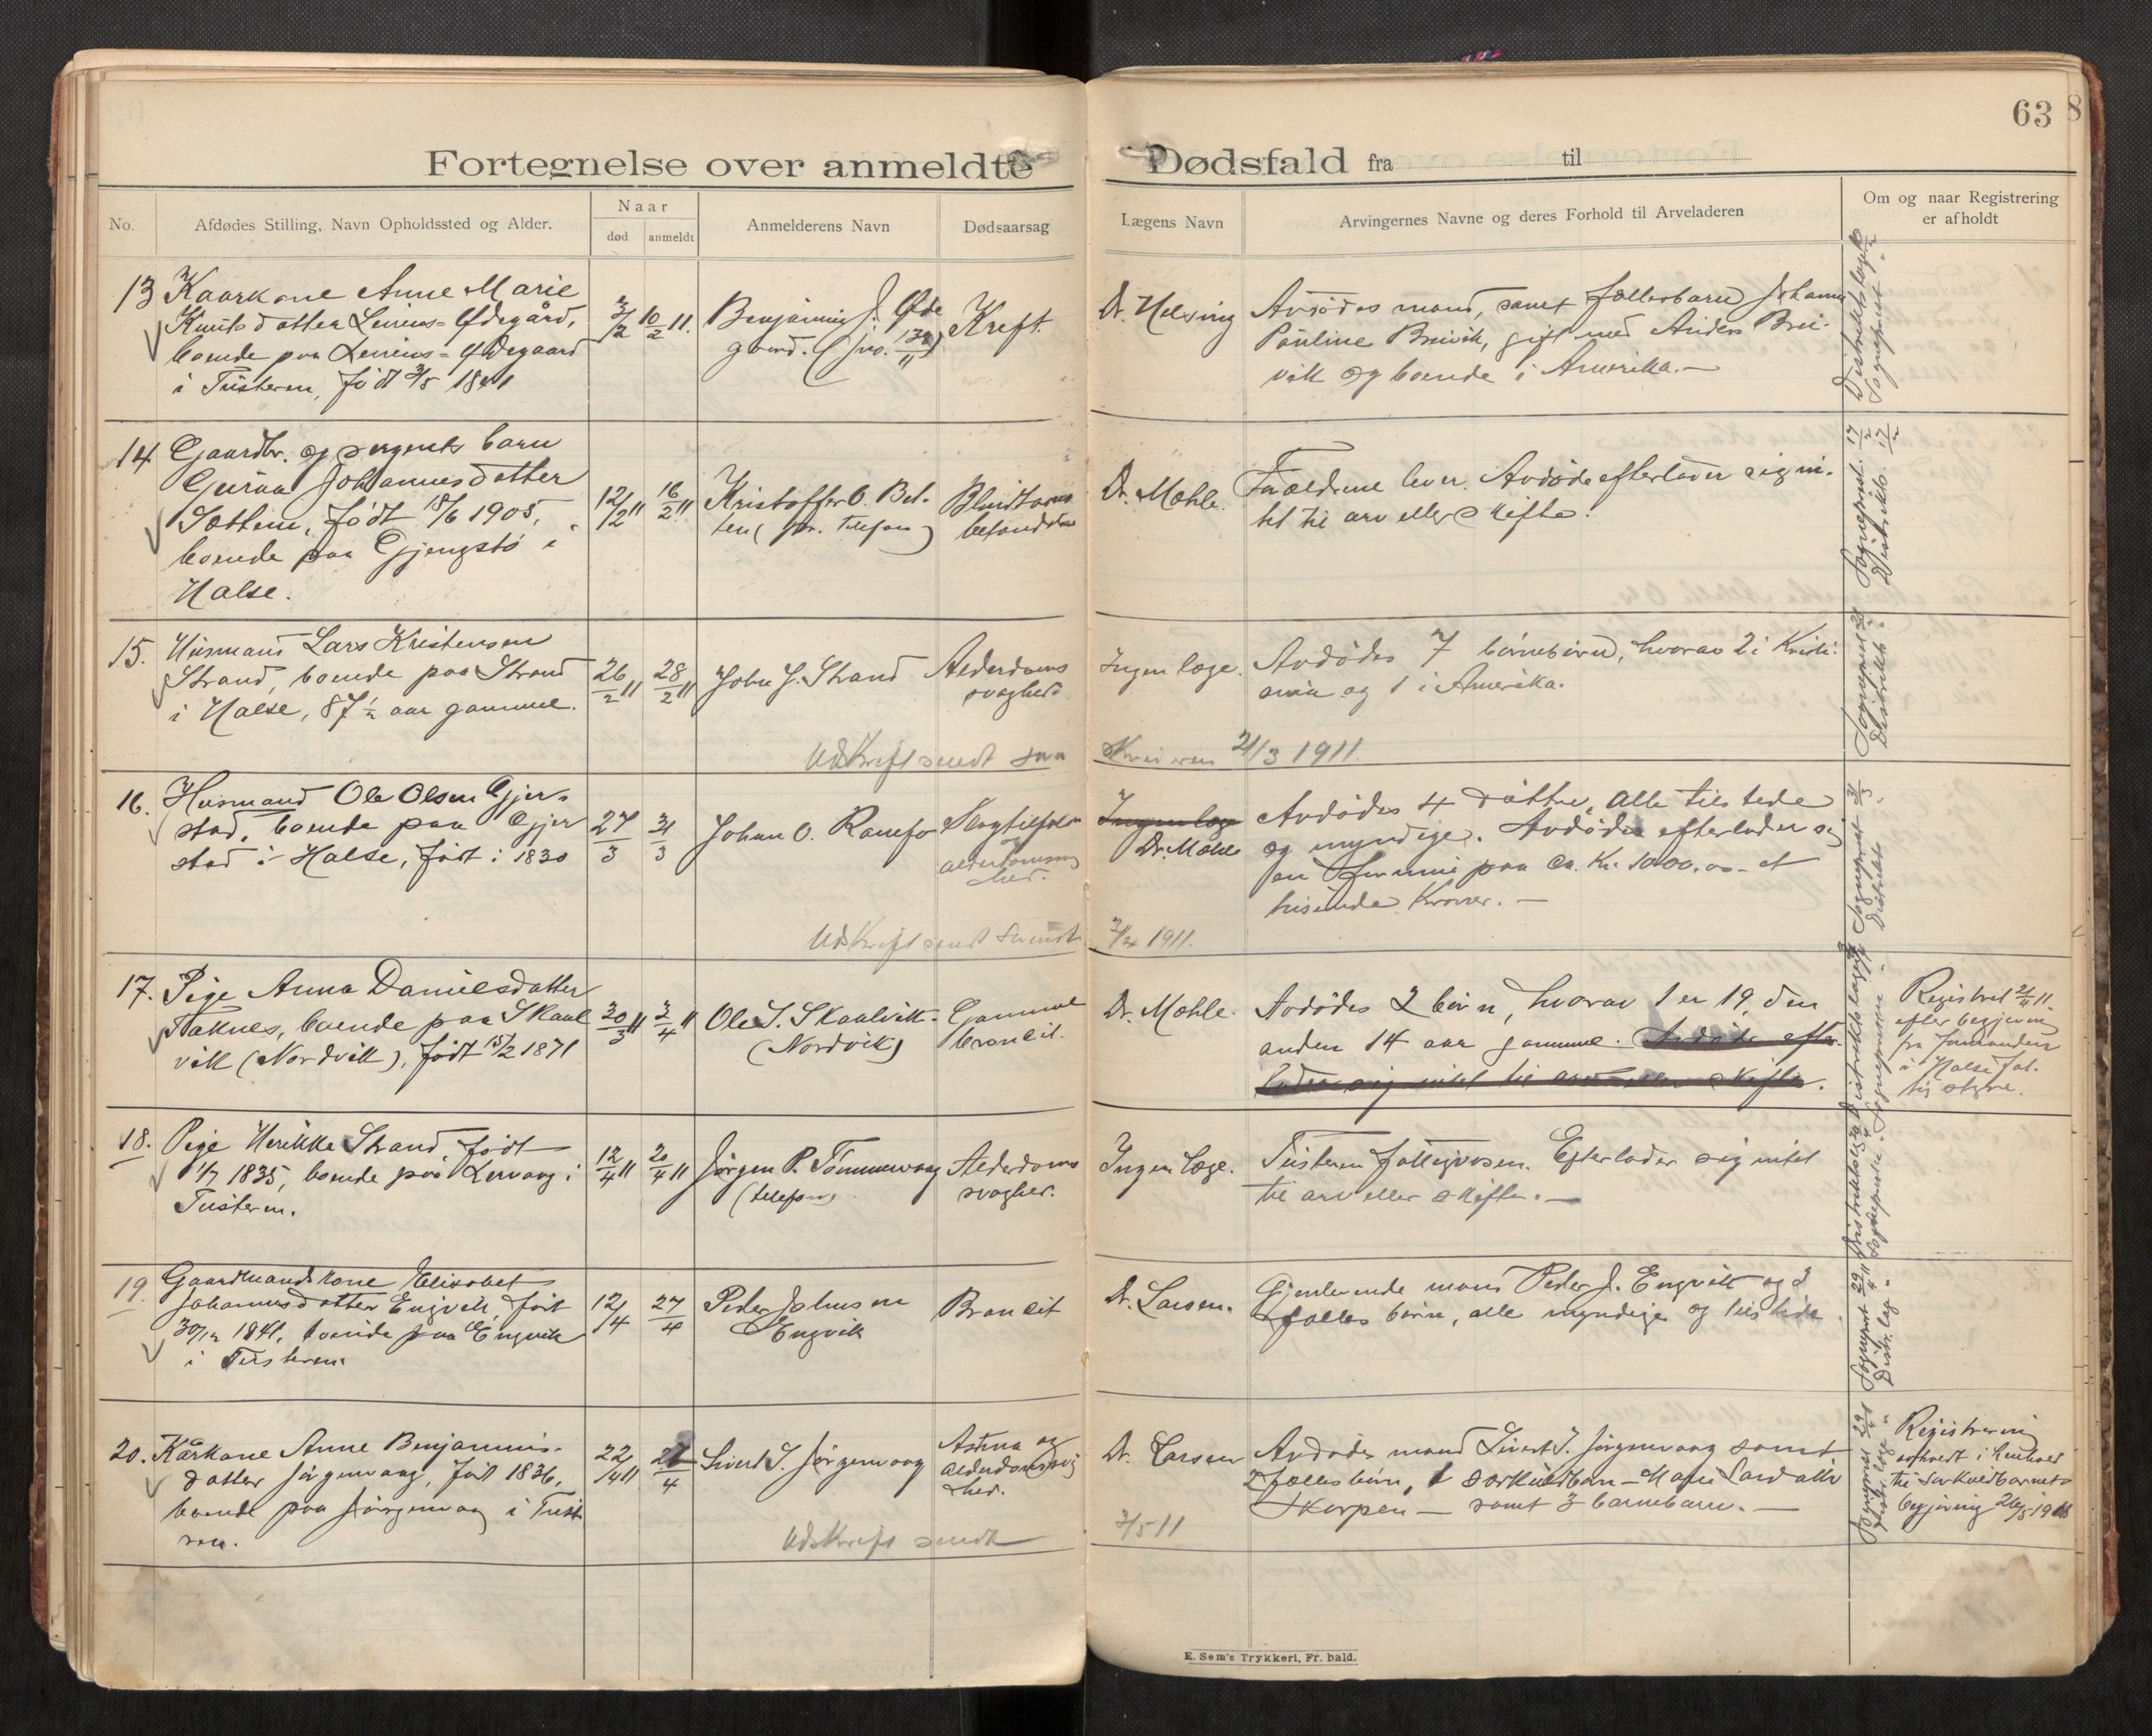 63
Fortegnelse over anmeldte Dødsfald fra til
No.
Afdødes Stilling, Navn Opholdssted og Alder.
Naar
død
anmeldt
Anmelderens Navn
Dødsaarsag
Lægens Navn
Arvingernes Navne og deres Forhold til Arveladeren
Om og naar Registrering
er afholdt
13 Kaarkone Anne Marie
Knutsdatter Leirens-Ødegård,
boende paa Leirens-Ødegaard
i Tusteren, født 3/5 1841
3/2
10/2 11.
Benjamin J. Øde
gaard.
Kreft.
Dr. Helsing
Avdødes mand, samt fællesbarn Johanne
Pauline Breivik, gift med Anders Brei-
vik og boende i Amerika.—
14 Gaardbr. og sergents barn
Guraa Johannesdatter
Sættem, født 18/6 1905,
boende paa Gjengstø i
Halse.
12/2 11
16/2 11
Kristoffer O. Bot-
ten (pr. telefon)
Blindtarms
betændelse
Dr. Mæhle.
Forældrene lever. Avdøde efterlader sig in-
tet til arv eller skifte.
Sogneprest. 17/2
Distrikts. 17/2
15. Husmand Lars Kristensen
Strand, boende paa Strand
i Halse, 87 1/2 aar gammel.
26/2 11
28/2 11
John J. Strand
Alderdoms
svaghed
Ingen læge.
Avdødes 7 børnebørn, hvorav 2 i Kristi-
ania og 1 i Amerika.
Udskrift sendt
21/3 1911.
16. Husmand Ole Olsen Gjer-
stad, boende paa Gjer
stad i Halse, født i 1830
27/3
31/3
Johan O. Ranesfo
Slagtilfælde
alderdomssvag
hed.
Ingen læge
Dr. Mæhle
Avdødes 4 døttre, alle tilstede
og myndige. Avdøde efterlader sig
en formue paa ca. Kr. 1000.00 - et
tusinde kroner.—
Udskrift sendt
3/4 1911.
17. Pige Anna Danielsdatter
Taknes, boende paa Skaal
vik (Nordvik), født 15/2 1871
20/3 11
3/4 11
Ole S. Skaalvik.
(Nordvik)
Gammel
bronkit.
Dr. Mæhle.
Avdødes 2 børn, hvorav 1 er 19, den
anden 14 aar gammel. Avdøde efter-
lader sig intet til arv eller skifte.
Registret 21/4 11
efter begjæring
fra formanden
i Halse fat-
tigstyre.
18. Pige Henrikke Strand, født
1/7 1835, boende paa Lervaag i
Tusteren.
12/4 11
20/4 11
Jørgen P. Tømmervaag
(telefon)
Alderdoms
svaghed.
Ingen læge.
Tusteren fattigvæsen. Efterlader sig intet
til arv eller skifte.—
19. Gaardmandskone Elisabet
Johannesdatter Engvik, født
30/12 1841, boende paa Engvik
i Tusteren.
12/4
27/4
Peder Johnsen
Engvik
Bronkit
Dr. Larsen.
Gjenlevende mand Peder J. Engvik og 3
fælles børn, alle myndige og tilstede
20. Kårkone Anne Benjamins-
datter Jørgenvaag, født 1836,
boende paa Jørgenvaag i Tust
ren.
22/4 11
Sivert I. Jørgenvaag
Astma og
alderdomssvag
hed.
Dr. Larsen
Avdødes mand Sivert I. Jørgenvaag samt
2 fællesbørn, 1 særkuldbarn — Mari Larsdatter
Skorpen — samt 3 barnebarn.—
Registrering
avholdt i henhold
til særkuldbarnets
begjæring 26/5 1911
Udskrift sendt
3/5 11
E. Sem's Trykkeri, Fr. hald.